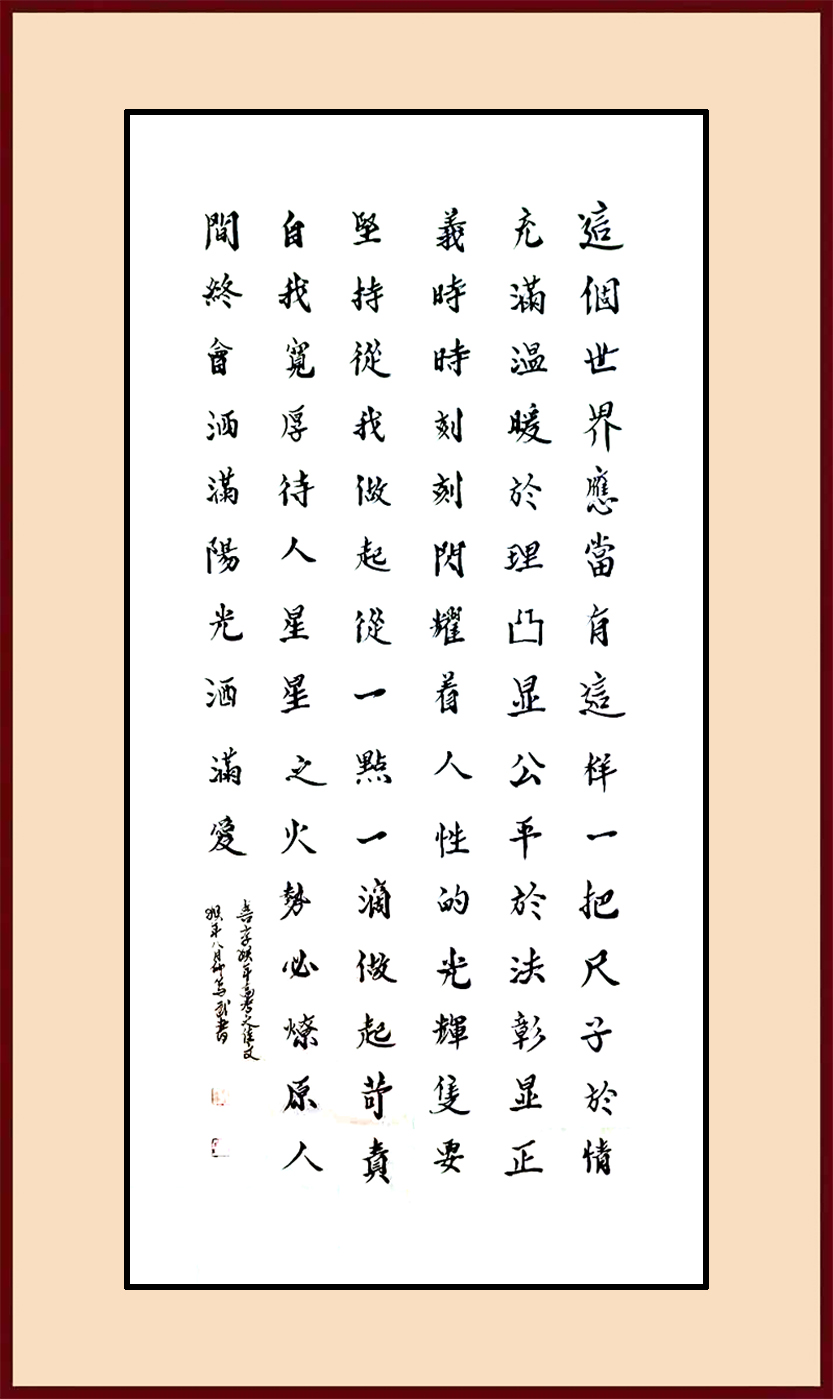 這個世界應當有這样一把尺子於情
充滿温暖於理凸显公平於法彰显正
義時時刻刻閃耀着人性的光輝隻要
堅持從我做起從一點一滴做起苛責
自我寬厚待人星星之火勢必燎原人
間終會洒滿陽光洒滿愛
年高考之作文
年八月